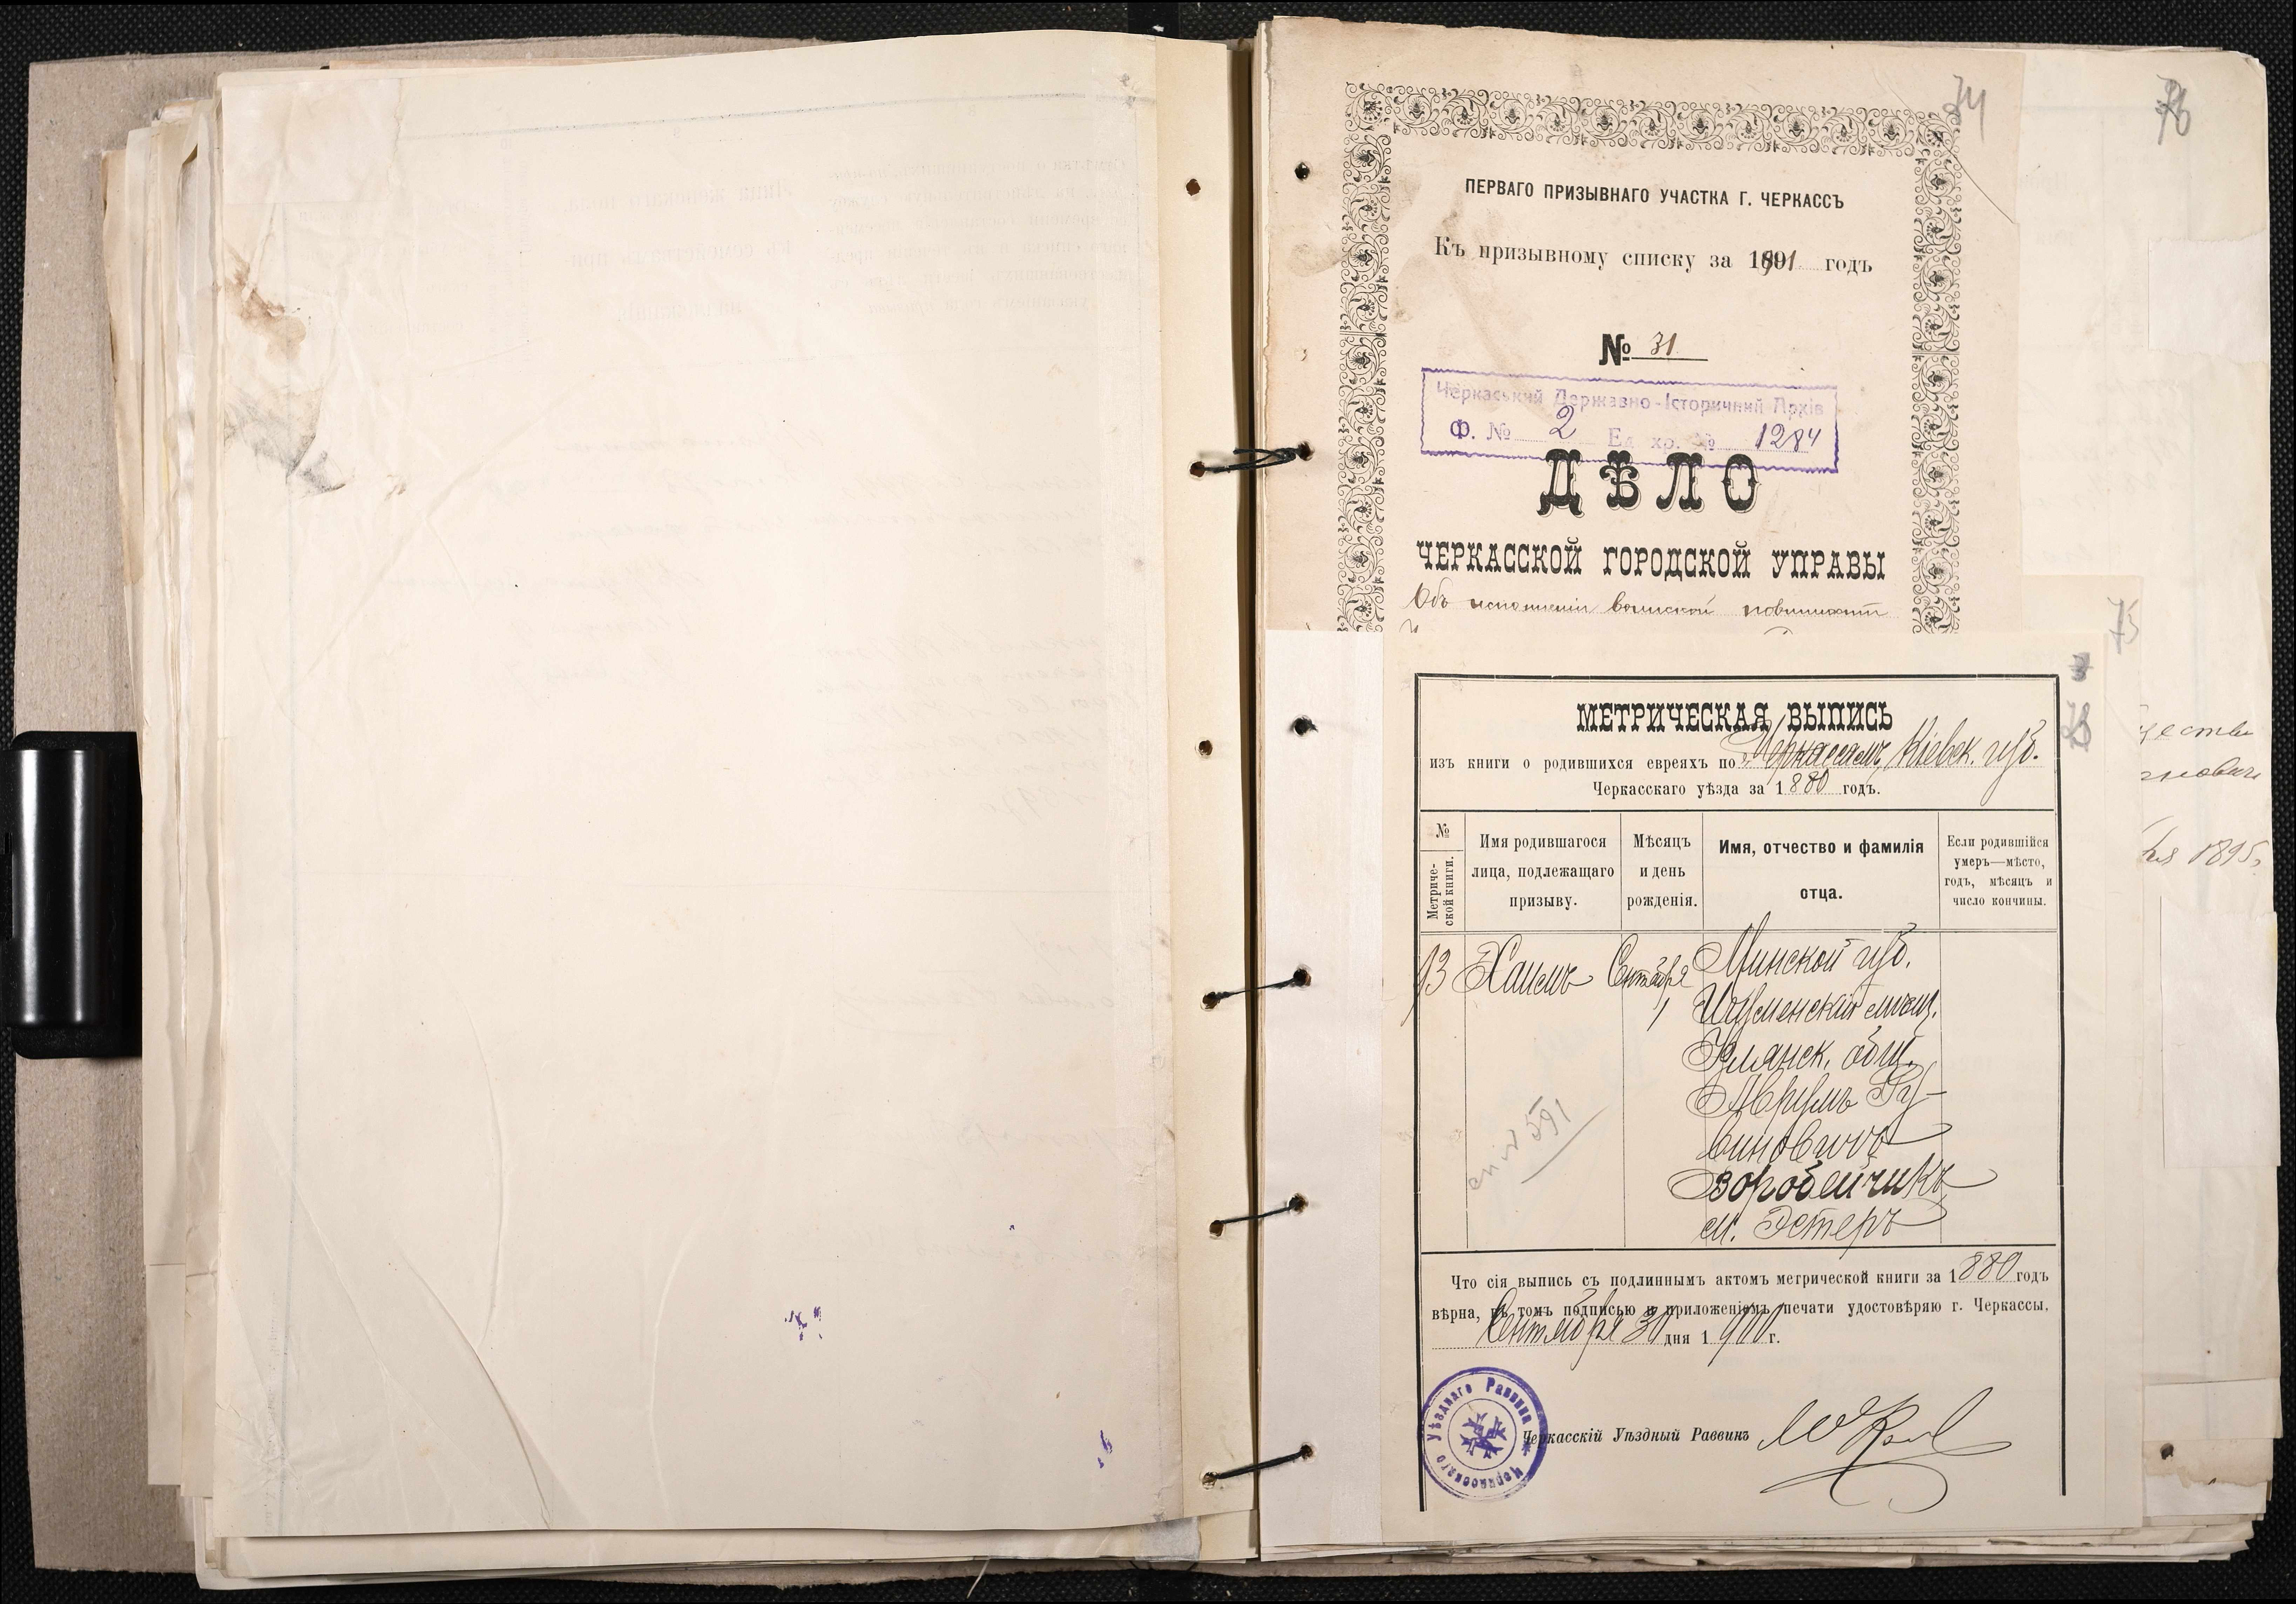 74
76
ПЕРВАГО ПРИЗЫВНАГО УЧАСТКА Г. ЧЕРКАССЪ
Къ призывному списку за 1891 годъ
№ 31
Черкаський Державно-Історичний Архів
Ф. № 2 Ед. хр. № 1284
ДѢЛО
ЧЕРКАССКОЙ ГОРОДСКОЙ УПРАВЫ
Объ исполненіи воинской повинности
75
МЕТРИЧЕСКАЯ ВЫПИСЬ
изъ книги о родившихся евреяхъ по г. Черкассамъ, Кіевск. губ.
Черкасскаго уѣзда за 1880 годъ.
№ Метрической книги.
Имя родившагося лица, подлежащаго призыву.
Мѣсяцъ и день рожденія.
Имя, отчество и фамилія отца.
Если родившійся умеръ—мѣсто, годъ, мѣсяцъ и число кончины.
93 Хаимъ Сентября Минской губ.
1 Игуменскій мѣщ.
общ.
Аврумъ Ру-
виновичъ
Воробейчикъ
м. Эстеръ
591
Что сія выпись съ подлиннымъ актомъ метрической книги за 1880 годъ
вѣрна, въ томъ подписью и приложеніемъ печати удостовѣряю г. Черкассы,
Сентября 30 дня 1900 г.
Черкасскій Уѣздный Раввинъ
Черкасскаго Уѣзднаго Раввина
1895